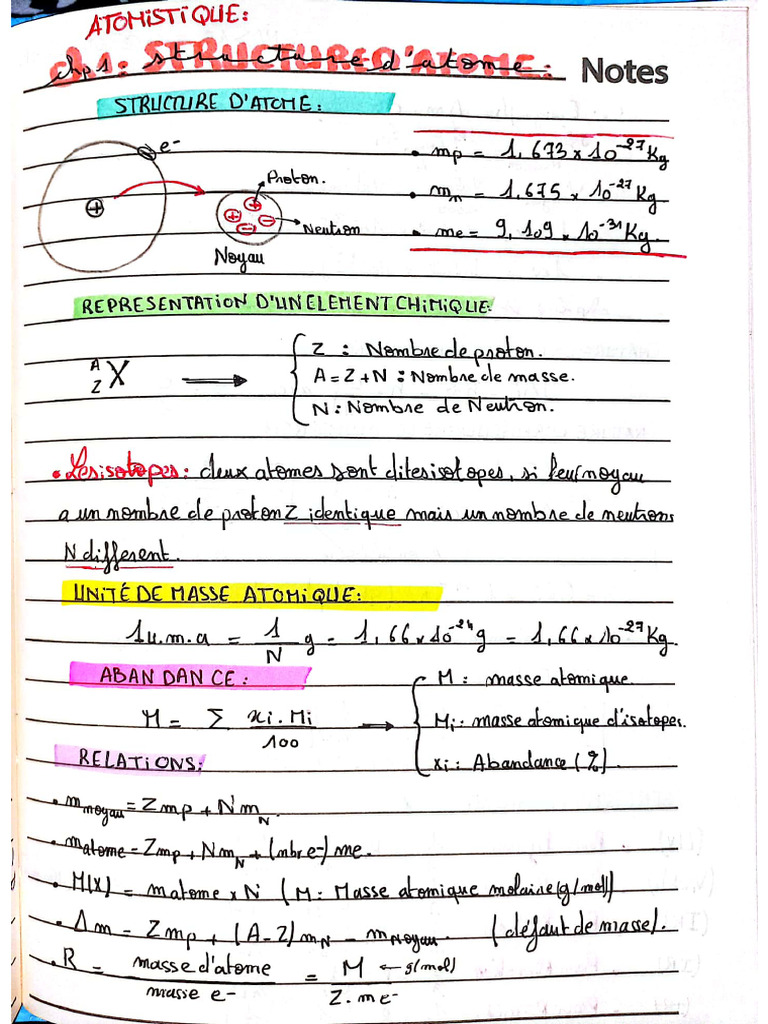 ATOMISTIQUE:
chp1: STRUCTURE D'ATOME: Notes
STRUCTURE D'ATOME:
e-
• mp = 1,673 x 10⁻²⁷ Kg
Proton.
• mn = 1,675 x 10⁻²⁷ Kg
Neutron
• me = 9,109 x 10⁻³¹ Kg.
Noyau
REPRESENTATION D'UN ELEMENT CHIMIQUE:
Z : Nombre de proton.
ᴬ_Z X ⟹ A = Z + N : Nombre de masse.
N : Nombre de Neutron.
• Les isotopes : deux atomes sont dites isotopes, si leur noyau
a un nombre de proton Z identique mais un nombre de neutrons
N different.
UNITÉ DE MASSE ATOMIQUE:
1 u.m.a = 1/N g = 1,66 x 10⁻²⁴ g = 1,66 x 10⁻²⁷ Kg.
ABANDANCE :
M : masse atomique.
M = Σ xi.Mi / 100 → Mi : masse atomique d'isotopes.
xi : Abandance (%).
RELATIONS:
• m noyau = Z mp + N m_N
• m atome = Z mp + N m_N + (nbre e-) me.
• M(X) = m atome x N (M : Masse atomique molaire (g/mol))
• Δm = Z mp + (A - Z) m_N - m Noyau. (défaut de masse).
• R = masse d'atome / masse e- = M ← g/mol) / Z.me-